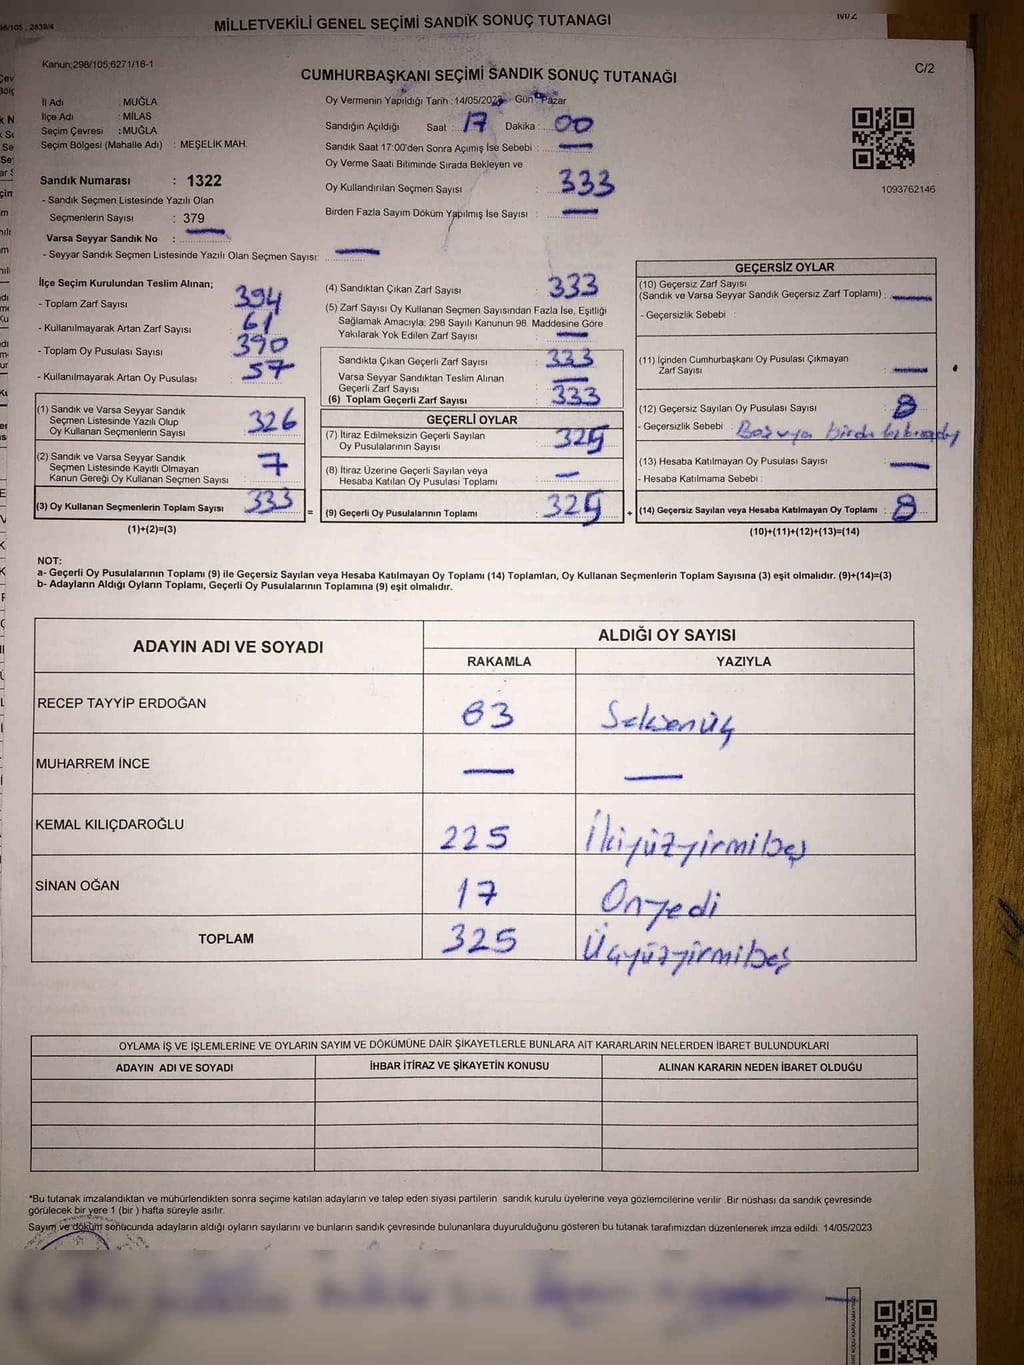 MİLLETVEKİLİ GENEL SEÇİMİ SANDIK SONUÇ TUTANAĞI
Kanun;298/105;6271/18-1
C/2
CUMHURBAŞKANI SEÇİMİ SANDIK SONUÇ TUTANAĞI
İl Adı : MUĞLA
İlçe Adı : MİLAS
Seçim Çevresi : MUĞLA
Seçim Bölgesi (Mahalle Adı) : MEŞELİK MAH.
Sandık Numarası : 1322
- Sandık Seçmen Listesinde Yazılı Olan
Seçmenlerin Sayısı : 379
Varsa Seyyar Sandık No : —
- Seyyar Sandık Seçmen Listesinde Yazılı Olan Seçmen Sayısı: —
Oy Vermenin Yapıldığı Tarih : 14/05/2023 Gün : Pazar
Sandığın Açıldığı Saat : 17 Dakika : 00
Sandık Saat 17:00'den Sonra Açımış İse Sebebi : —
Oy Verme Saati Bitiminde Sırada Bekleyen ve
Oy Kullandırılan Seçmen Sayısı : 333
Birden Fazla Sayım Döküm Yapılmış İse Sayısı : —
1093762146
İlçe Seçim Kurulundan Teslim Alınan;
- Toplam Zarf Sayısı : 394
- Kullanılmayarak Artan Zarf Sayısı : 61
- Toplam Oy Pusulası Sayısı : 390
- Kullanılmayarak Artan Oy Pusulası : 57
(1) Sandık ve Varsa Seyyar Sandık
Seçmen Listesinde Yazılı Olup
Oy Kullanan Seçmenlerin Sayısı : 326
(2) Sandık ve Varsa Seyyar Sandık
Seçmen Listesinde Kayıtlı Olmayan
Kanun Gereği Oy Kullanan Seçmen Sayısı : 7
(3) Oy Kullanan Seçmenlerin Toplam Sayısı : 333 =
(1)+(2)=(3)
(4) Sandıktan Çıkan Zarf Sayısı : 333
(5) Zarf Sayısı Oy Kullanan Seçmen Sayısından Fazla İse, Eşitliği
Sağlamak Amacıyla; 298 Sayılı Kanunun 98. Maddesine Göre
Yakılarak Yok Edilen Zarf Sayısı : —
Sandıkta Çıkan Geçerli Zarf Sayısı : 333
Varsa Seyyar Sandıktan Teslim Alınan
Geçerli Zarf Sayısı : —
(6) Toplam Geçerli Zarf Sayısı : 333
GEÇERLİ OYLAR
(7) İtiraz Edilmeksizin Geçerli Sayılan
Oy Pusulalarının Sayısı : 325
(8) İtiraz Üzerine Geçerli Sayılan veya
Hesaba Katılan Oy Pusulası Toplamı : —
(9) Geçerli Oy Pusulalarının Toplamı : 325 +
GEÇERSİZ OYLAR
(10) Geçersiz Zarf Sayısı
(Sandık ve Varsa Seyyar Sandık Geçersiz Zarf Toplamı) : —
- Geçersizlik Sebebi :
(11) İçinden Cumhurbaşkanı Oy Pusulası Çıkmayan
Zarf Sayısı : —
(12) Geçersiz Sayılan Oy Pusulası Sayısı : 8
- Geçersizlik Sebebi : Boş veya birden
(13) Hesaba Katılmayan Oy Pusulası Sayısı : —
- Hesaba Katılmama Sebebi :
(14) Geçersiz Sayılan veya Hesaba Katılmayan Oy Toplamı : 8
(10)+(11)+(12)+(13)=(14)
NOT:
a- Geçerli Oy Pusulalarının Toplamı (9) ile Geçersiz Sayılan veya Hesaba Katılmayan Oy Toplamı (14) Toplamları, Oy Kullanan Seçmenlerin Toplam Sayısına (3) eşit olmalıdır. (9)+(14)=(3)
b- Adayların Aldığı Oyların Toplamı, Geçerli Oy Pusulalarının Toplamına (9) eşit olmalıdır.
ADAYIN ADI VE SOYADI ALDIĞI OY SAYISI
RAKAMLA YAZIYLA
RECEP TAYYİP ERDOĞAN 83 Seksenüç
MUHARREM İNCE — —
KEMAL KILIÇDAROĞLU 225 İkiyüzyirmibeş
SİNAN OĞAN 17 Onyedi
TOPLAM 325 Üçyüzyirmibeş
OYLAMA İŞ VE İŞLEMLERİNE VE OYLARIN SAYIM VE DÖKÜMÜNE DAİR ŞİKAYETLERLE BUNLARA AİT KARARLARIN NELERDEN İBARET BULUNDUKLARI
ADAYIN ADI VE SOYADI İHBAR İTİRAZ VE ŞİKAYETİN KONUSU ALINAN KARARIN NEDEN İBARET OLDUĞU
*Bu tutanak imzalandıktan ve mühürlendikten sonra seçime katılan adayların ve talep eden siyasi partilerin sandık kurulu üyelerine veya gözlemcilerine verilir .Bir nüshası da sandık çevresinde
görülecek bir yere 1 (bir ) hafta süreyle asılır.
Sayım ve döküm sonucunda adayların aldığı oyların sayılarını ve bunların sandık çevresinde bulunanlara duyurulduğunu gösteren bu tutanak tarafımızdan düzenlenerek imza edildi. 14/05/2023